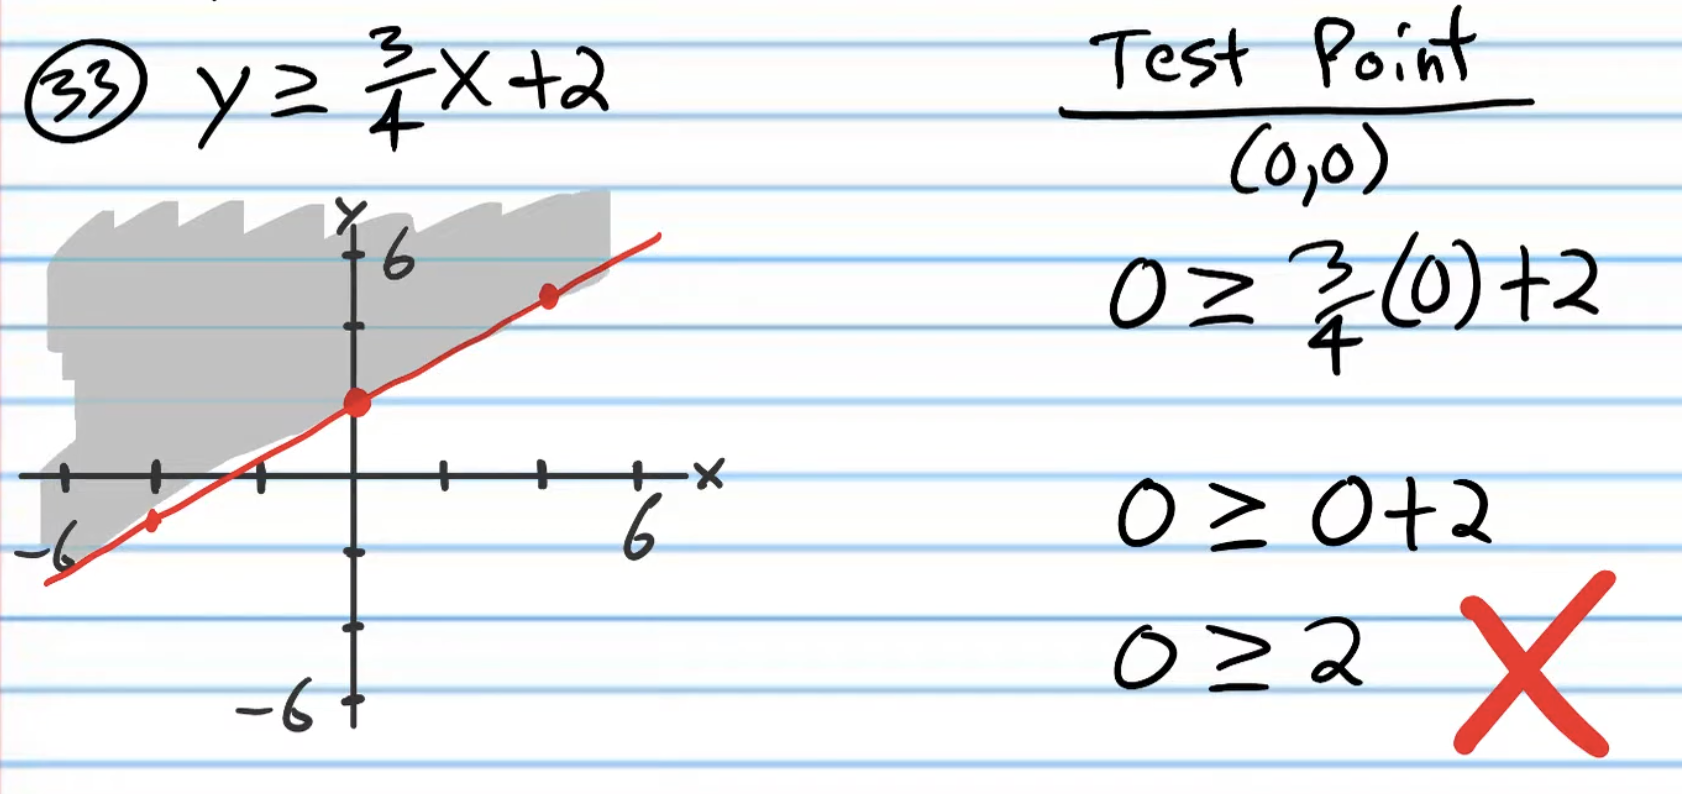 (33) y ≥ 3/4 x + 2
y
6
x
-6
6
-6
Test Point
(0,0)
0 ≥ 3/4 (0) + 2
0 ≥ 0 + 2
0 ≥ 2 X